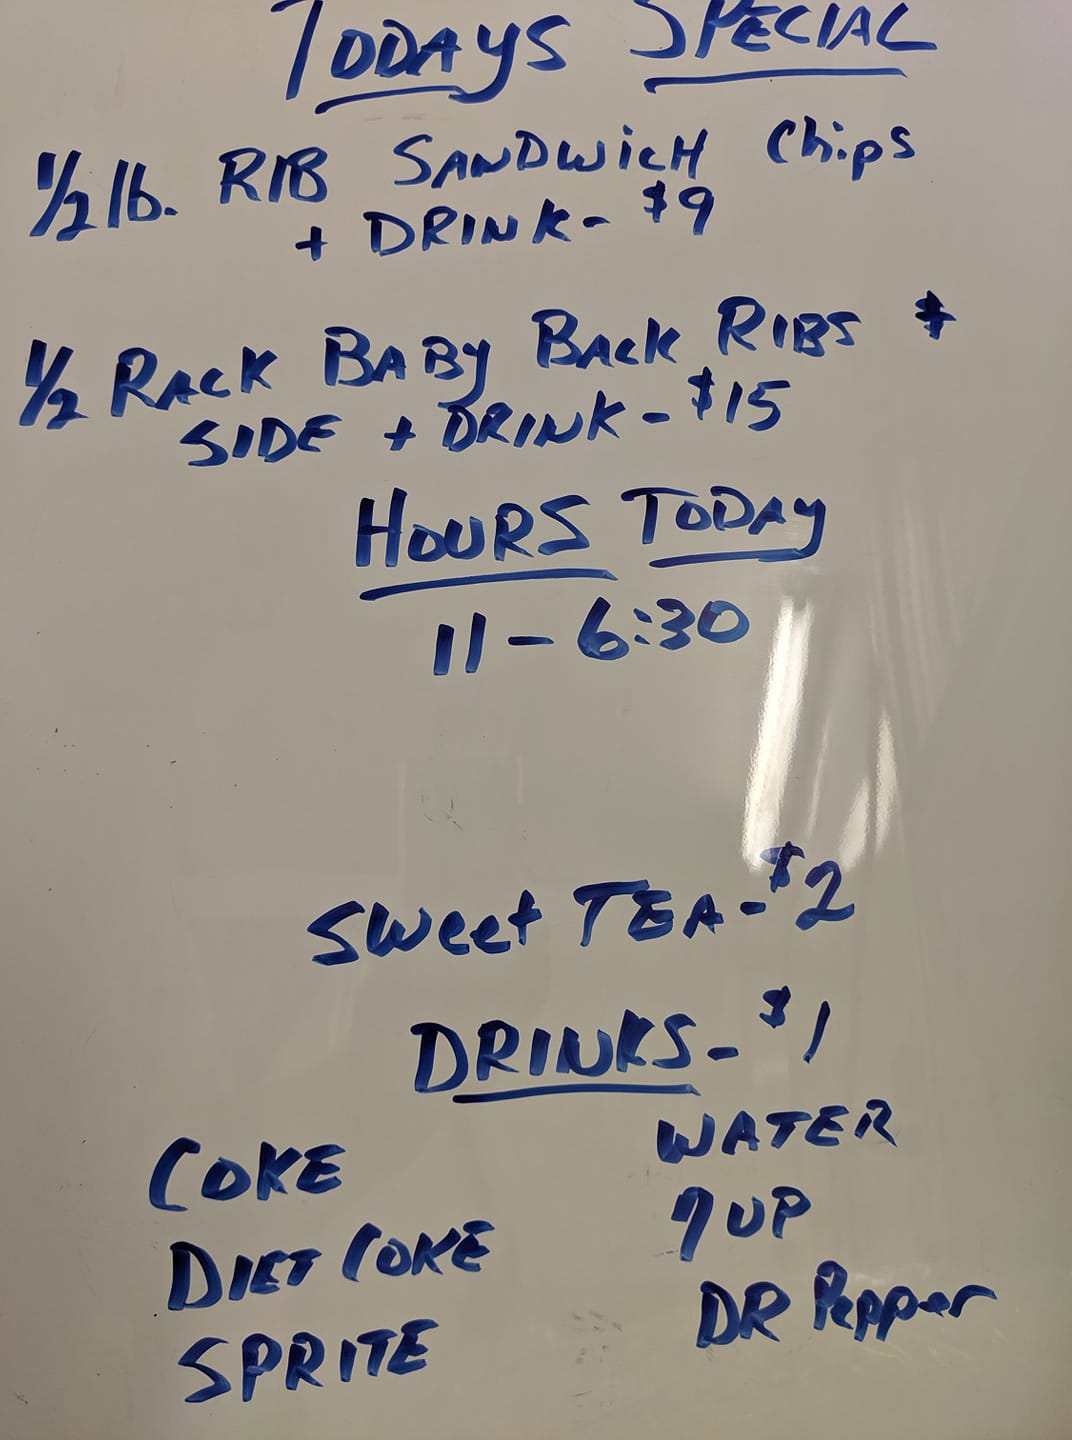 TODAYS SPECIAL
1/2 lb. RIB SANDWICH Chips
+ DRINK - $9
1/2 RACK BABY BACK RIBS +
SIDE + DRINK - $15
HOURS TODAY
11 - 6:30
SWeet TEA - $2
DRINKS - $1
COKE
DIET COKE
SPRITE
WATER
7UP
DR Pepper